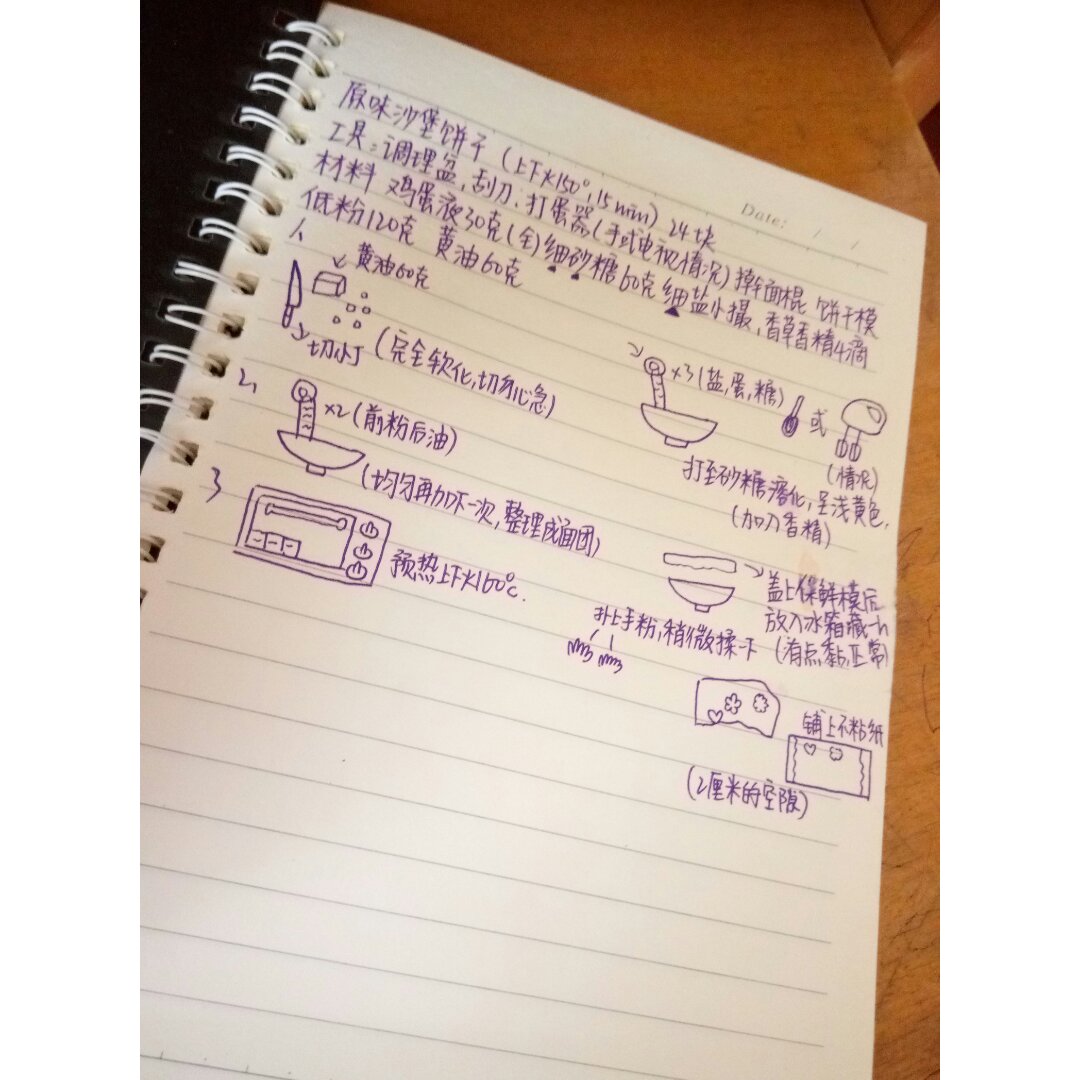 Date: / /
原味沙堡饼干 (上下火150°,15min) 24块
工具:调理盆,刮刀,打蛋器(手或电视情况)擀面棍 饼干模
材料 鸡蛋液30克(全)细砂糖60克 细盐小撮,香草香精4滴
低粉120克 黄油60克
1、
黄油60克
切小丁 (完全软化,切勿心急)
×3(盐,蛋,糖)
或
(情况)
打至砂糖溶化,呈浅黄色,
(加入香精)
2、
×2(前粉后油)
(均匀再加下一次,整理成面团)
盖上保鲜模后
放入冰箱藏一h
(有点黏,正常)
3
预热上下火160°c.
扑上手粉,稍微揉一下
铺上不粘纸
(2厘米的空隙)